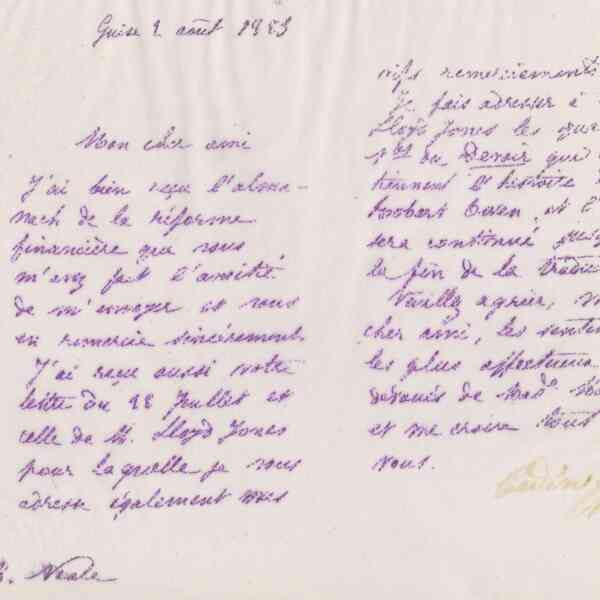 Guise 2 août 1883
Mon cher ami
J'ai bien reçu l'alma-
nach de la réforme
financière que vous
m'avez fait l'amitié
de m'envoyer et vous
en remercie sincèrement.
J'ai reçu aussi votre
lettre du 28 Juillet et
celle de M. Lloyd Jones
pour laquelle je vous
adresse également mes
Neale
vifs remerciements
Je fais adresser à
Lloyd Jones les
du Devoir qui
tiennent l'histoire
Robert Owen, et
sera continué
la fin de la
Veuillez agréer,
cher ami, les
les plus affectueux
dévoués de Mad.
et me croire tout
vous.